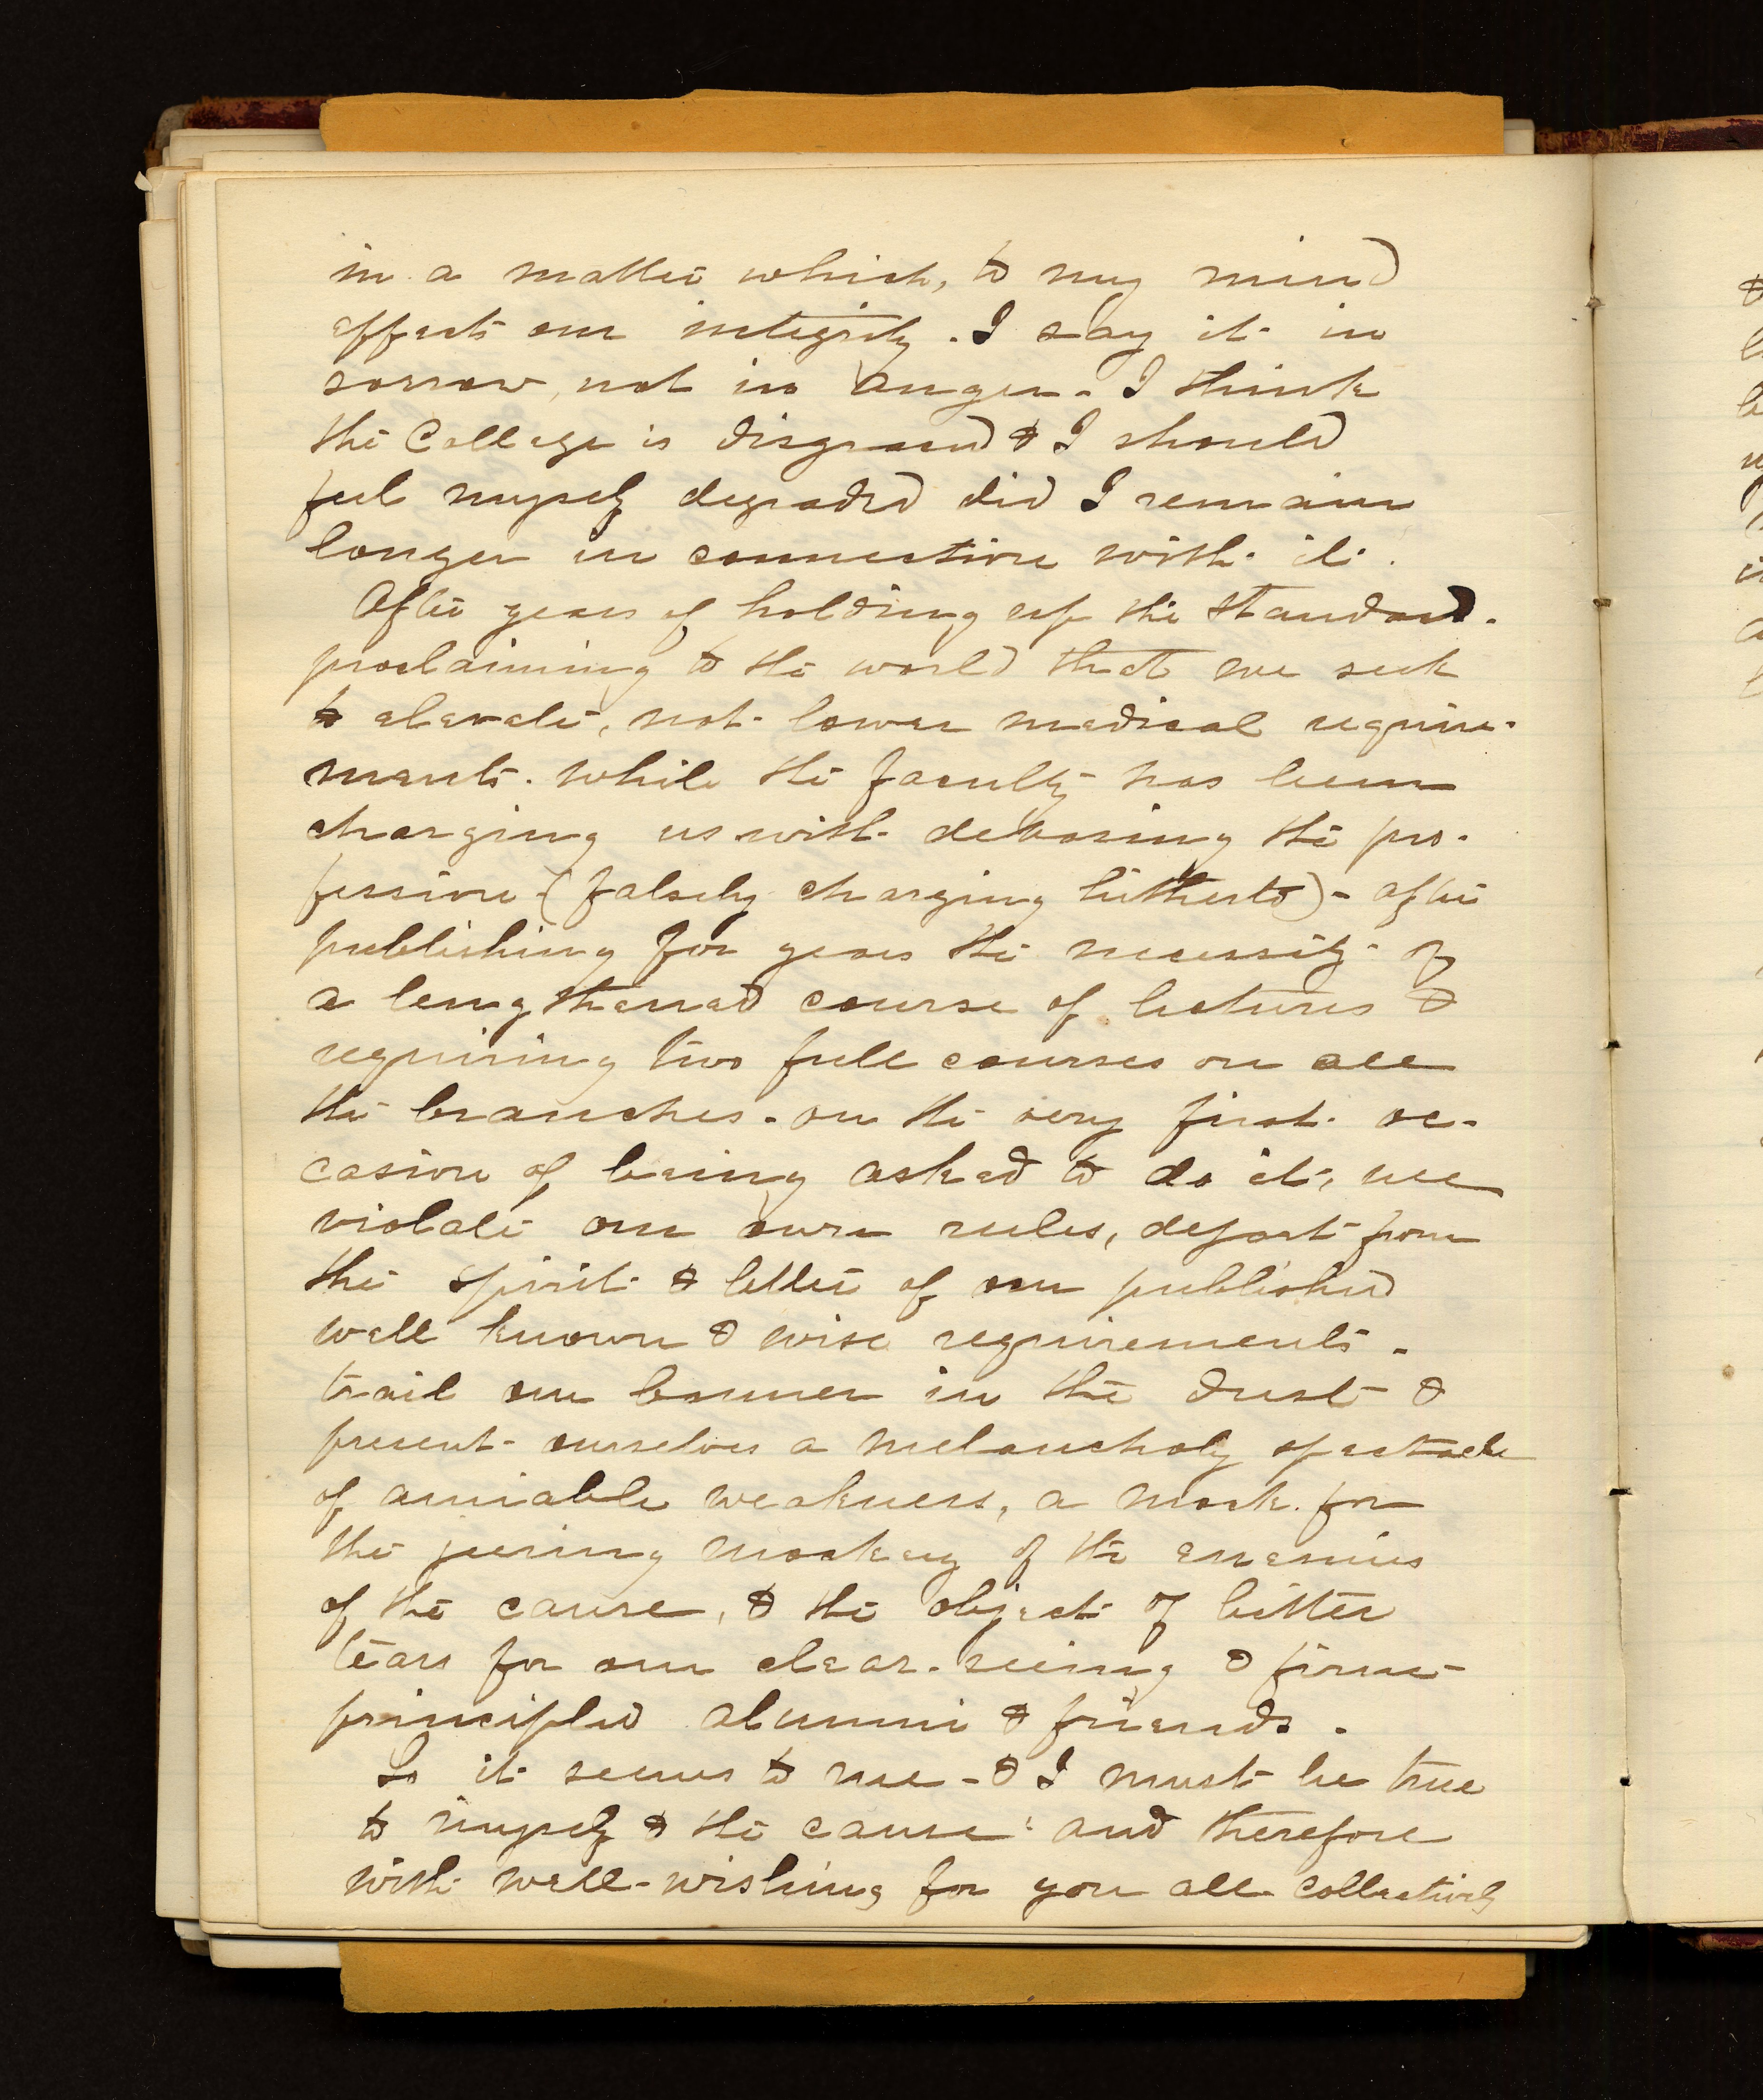 in a matter which, to my mind
affects our integrity. I say it in
sorrow, not in anger. I think
the College is disgraced & I should
feel myself degraded did I remain
longer in connection with it.
After years of holding up the standard.
proclaiming to the world that we seek
to elevate, not lower medical require-
ments. while the faculty has been
charging us with debasing the pro-
fession (falsely charging hitherto) - after
publishing for years the necessity of
a lengthened course of lectures &
requiring two full courses on all
the branches. on the very first oc-
casion of being asked to do it, we
violate our own rules, depart from
the spirit & letter of our published
well known & wise requirements.
trail our banner in the dust &
present ourselves a melancholy spectacle
of amiable weakness, a mark for
the jeering mockery of the enemies
of the cause, & the object of bitter
tears for our clear-seeing & firm-
principled alumni & friends.
So it seems to me - & I must be true
to myself & the cause: and therefore
with well-wishing for you all collectively